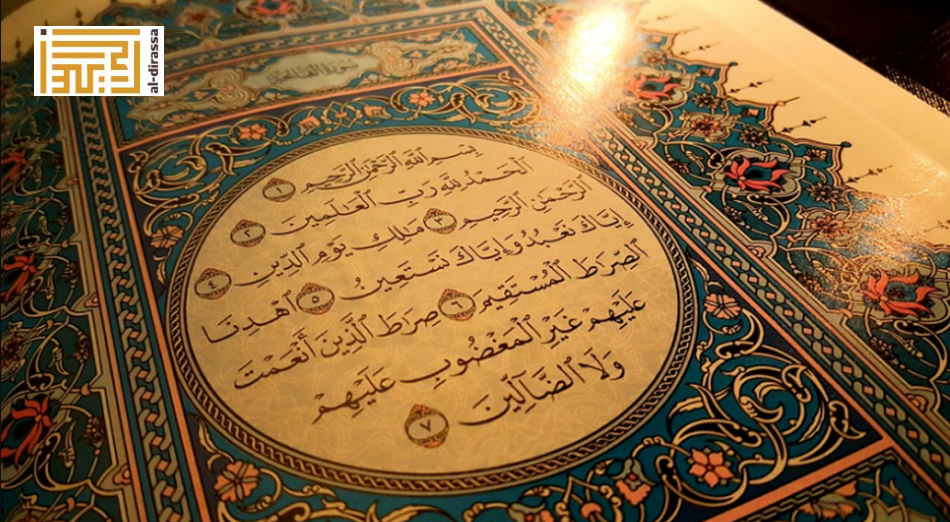 al-dirassa
سورة الفاتحة
بِسْمِ ٱللَّهِ ٱلرَّحْمَٰنِ ٱلرَّحِيمِ ١
ٱلْحَمْدُ لِلَّهِ رَبِّ ٱلْعَٰلَمِينَ ٢
ٱلرَّحْمَٰنِ ٱلرَّحِيمِ ٣ مَٰلِكِ يَوْمِ ٱلدِّينِ ٤
إِيَّاكَ نَعْبُدُ وَإِيَّاكَ نَسْتَعِينُ ٥ ٱهْدِنَا
ٱلصِّرَٰطَ ٱلْمُسْتَقِيمَ ٦ صِرَٰطَ ٱلَّذِينَ أَنْعَمْتَ
عَلَيْهِمْ غَيْرِ ٱلْمَغْضُوبِ عَلَيْهِمْ
وَلَا ٱلضَّآلِّينَ ٧